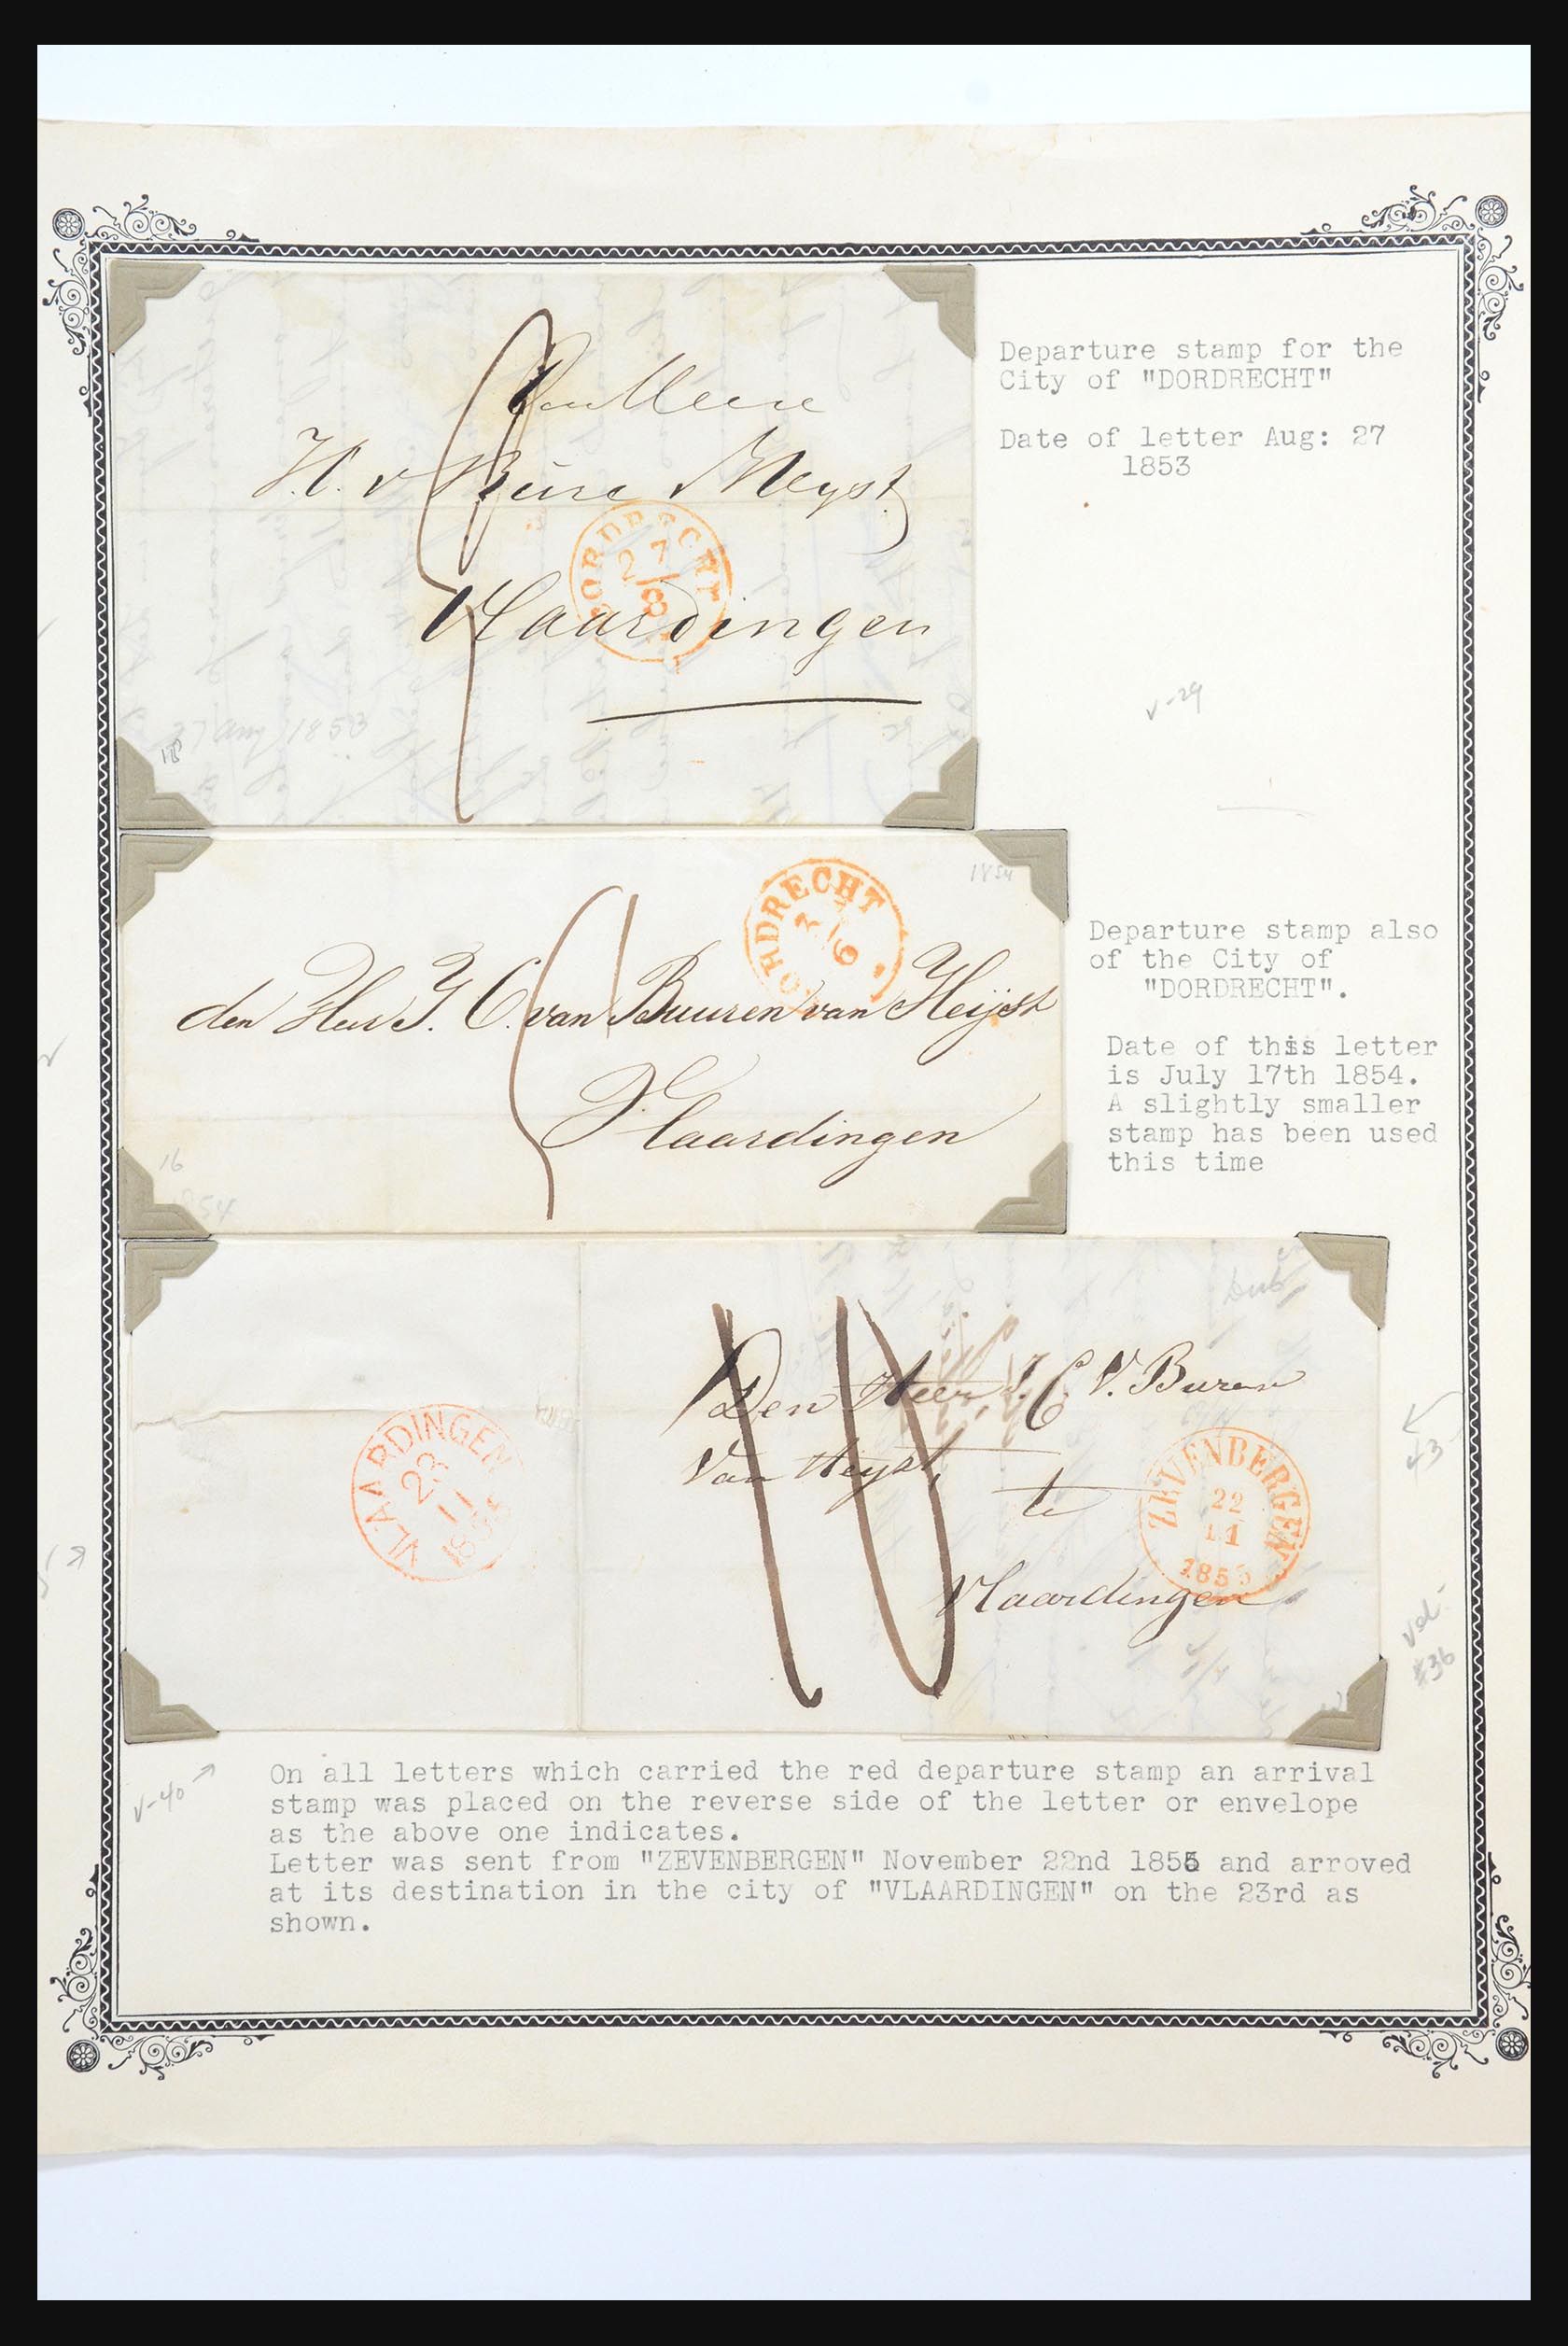 Departure stamp for the
City of "DORDRECHT"
Date of letter Aug: 27
1853
Den Heere
H. v Bure v Heyst
DORDRECHT
27/8
Vlaardingen
27 Aug 1853
18
v-29
1854
DORDRECHT
den Heer J. C. van Buuren van Heijst
Vlaardingen
16
1854
Departure stamp also
of the City of
"DORDRECHT".
Date of this letter
is July 17th 1854.
A slightly smaller
stamp has been used
this time
Den Heer J. C. V. Buren
Van Heyst,
te
Vlaardingen
VLAARDINGEN
23
11
ZEVENBERGEN
22
11
1855
43
vd-
#36
v-40
On all letters which carried the red departure stamp an arrival
stamp was placed on the reverse side of the letter or envelope
as the above one indicates.
Letter was sent from "ZEVENBERGEN" November 22nd 1855 and arroved
at its destination in the city of "VLAARDINGEN" on the 23rd as
shown.